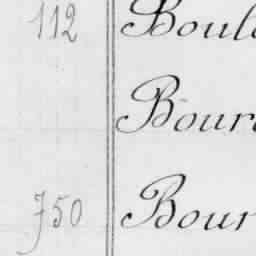 112 Boul
Bour
750 Bour